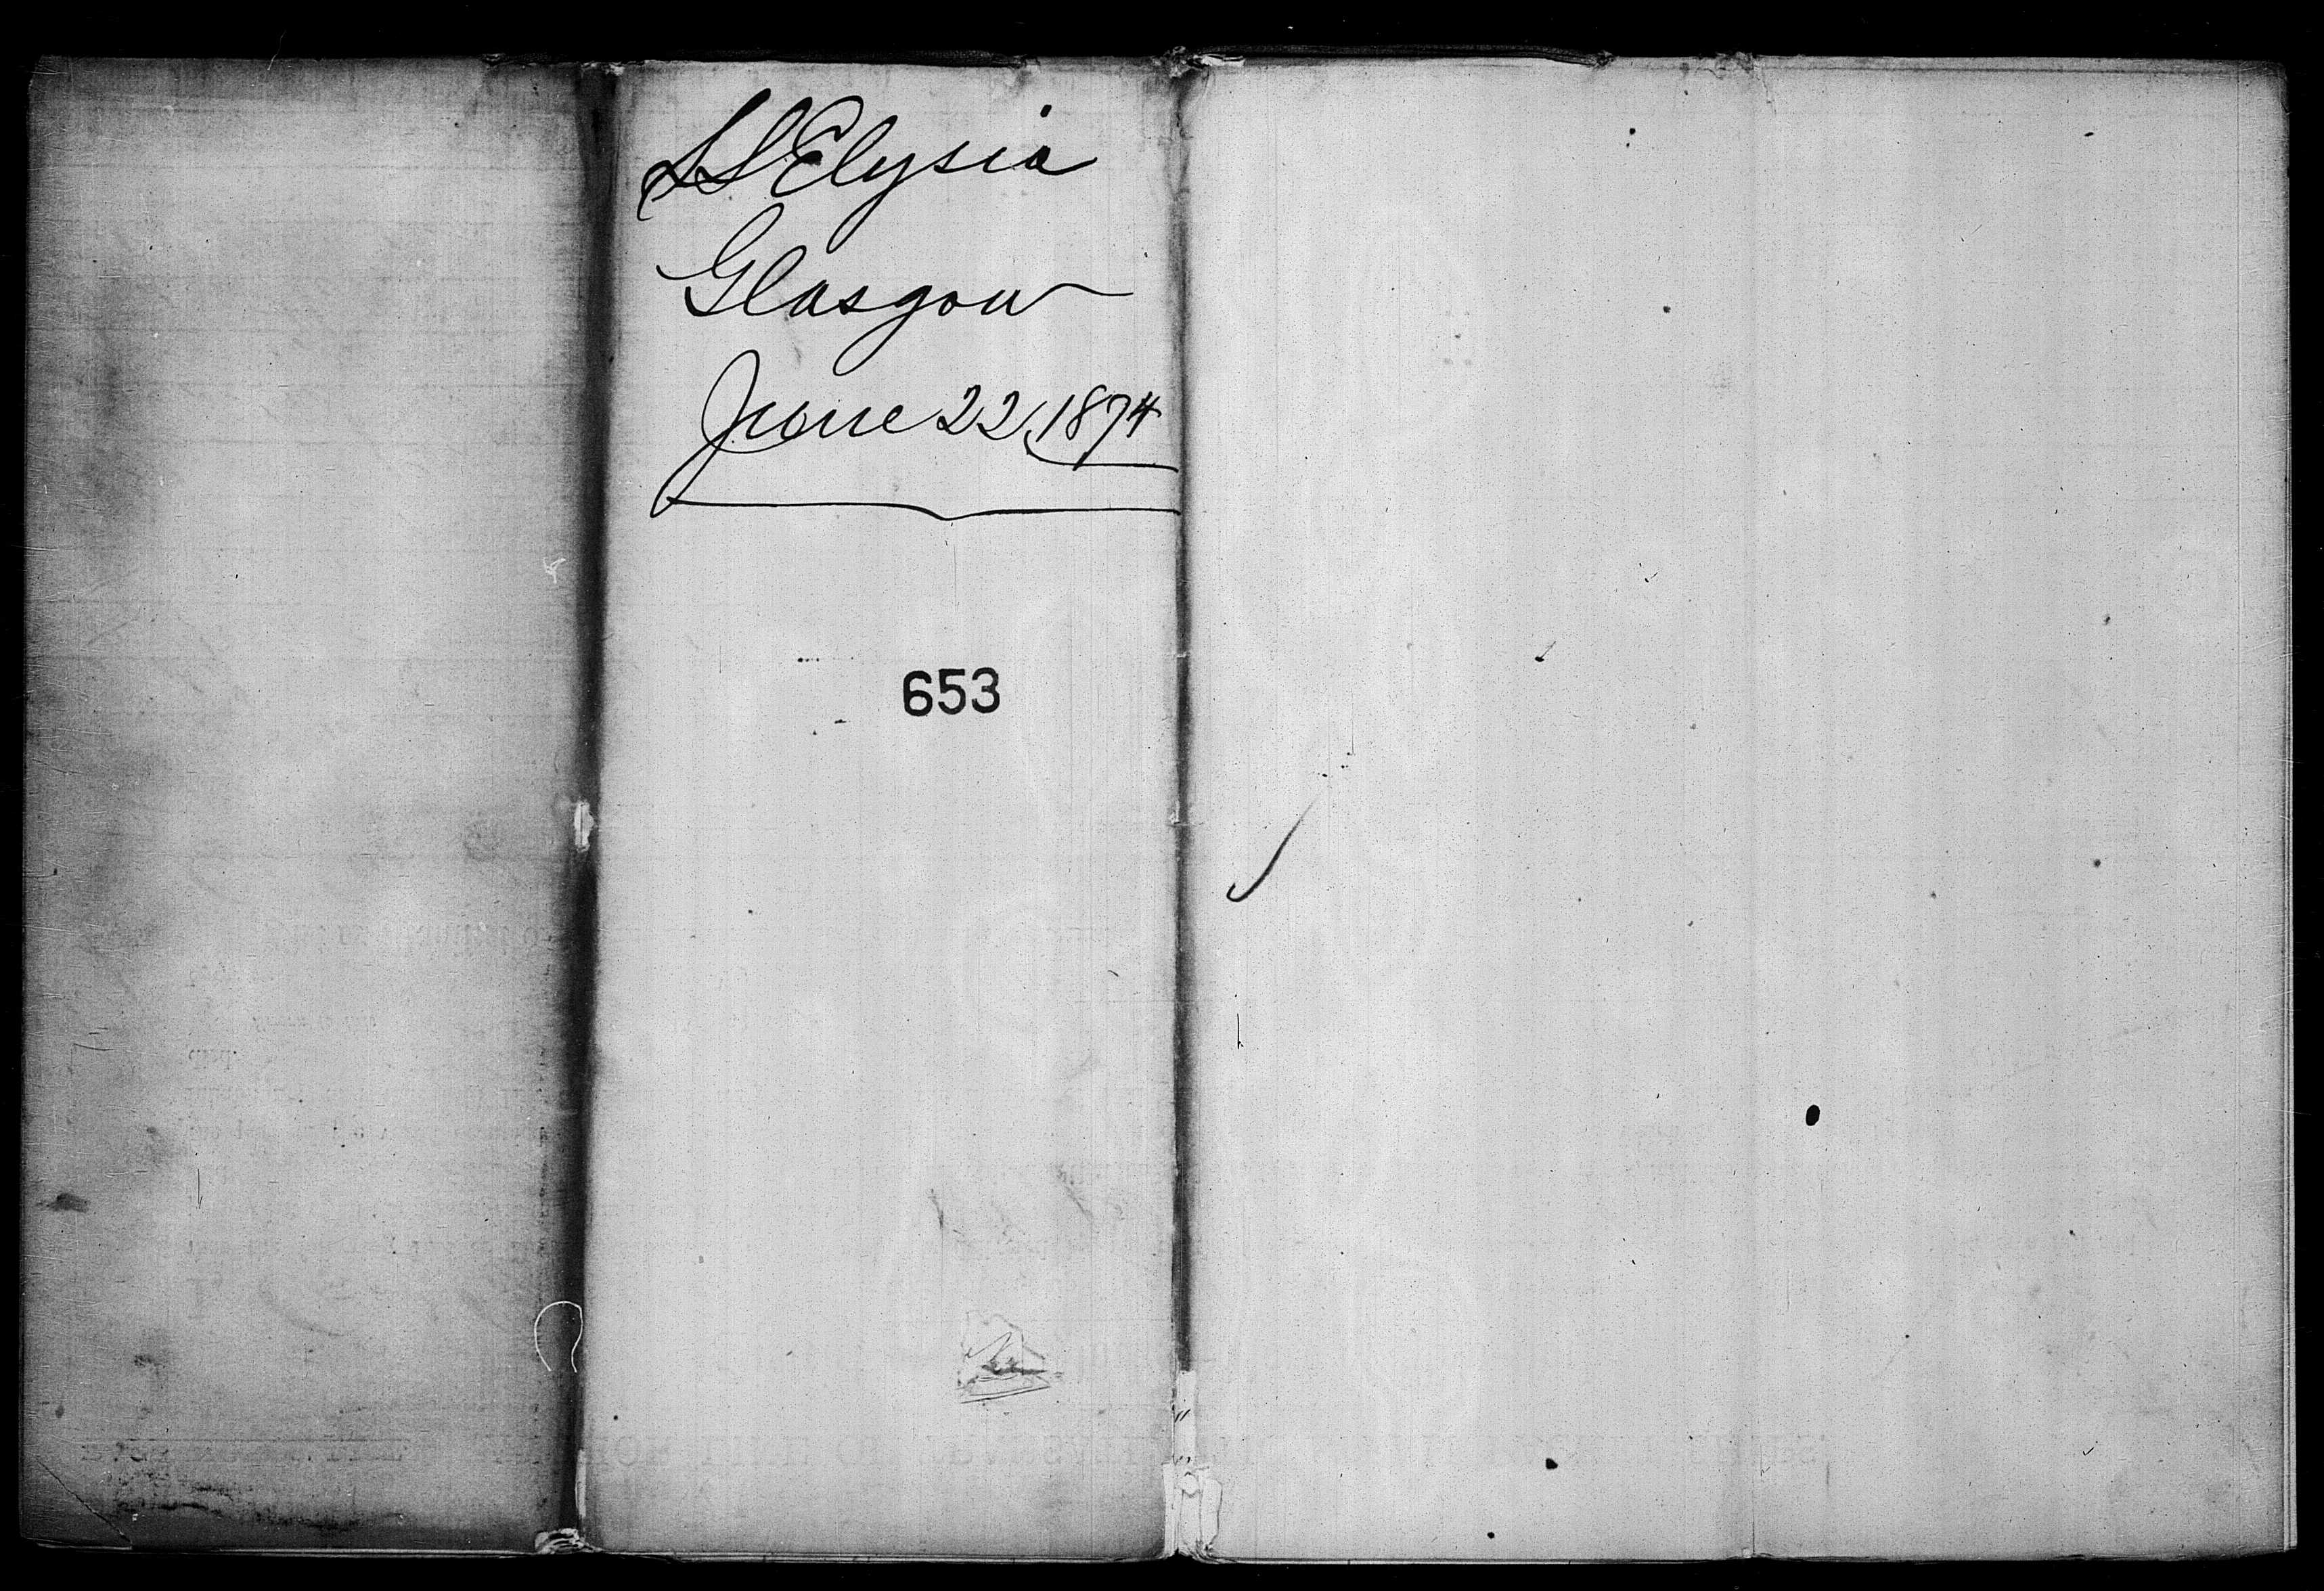 SS Elysia
Glasgow
June 22, 1874
653